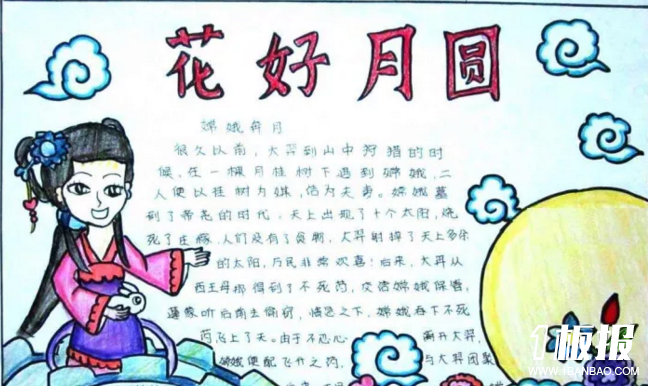 花好月圆
嫦娥奔月
很久以前，大羿到山中狩猎的时
候，在一棵月桂树下遇到嫦娥，二
人便以桂树为媒，结为夫妻。嫦娥
到了帝尧的时代，天上出现了十个太阳，烧
死了庄稼，人们没有了食物，大羿射掉了天上多余
的太阳，万民非常欢喜！后来，大羿从
西王母那得到了不死药，交给嫦娥保管，
蓬蒙听后前去偷窃，情急之下，嫦娥吞下不死
药飞上了天。由于不忍心 离开大羿，
嫦娥便配飞升之药， 与大羿团聚
板报
WWW.1BANBAO.COM